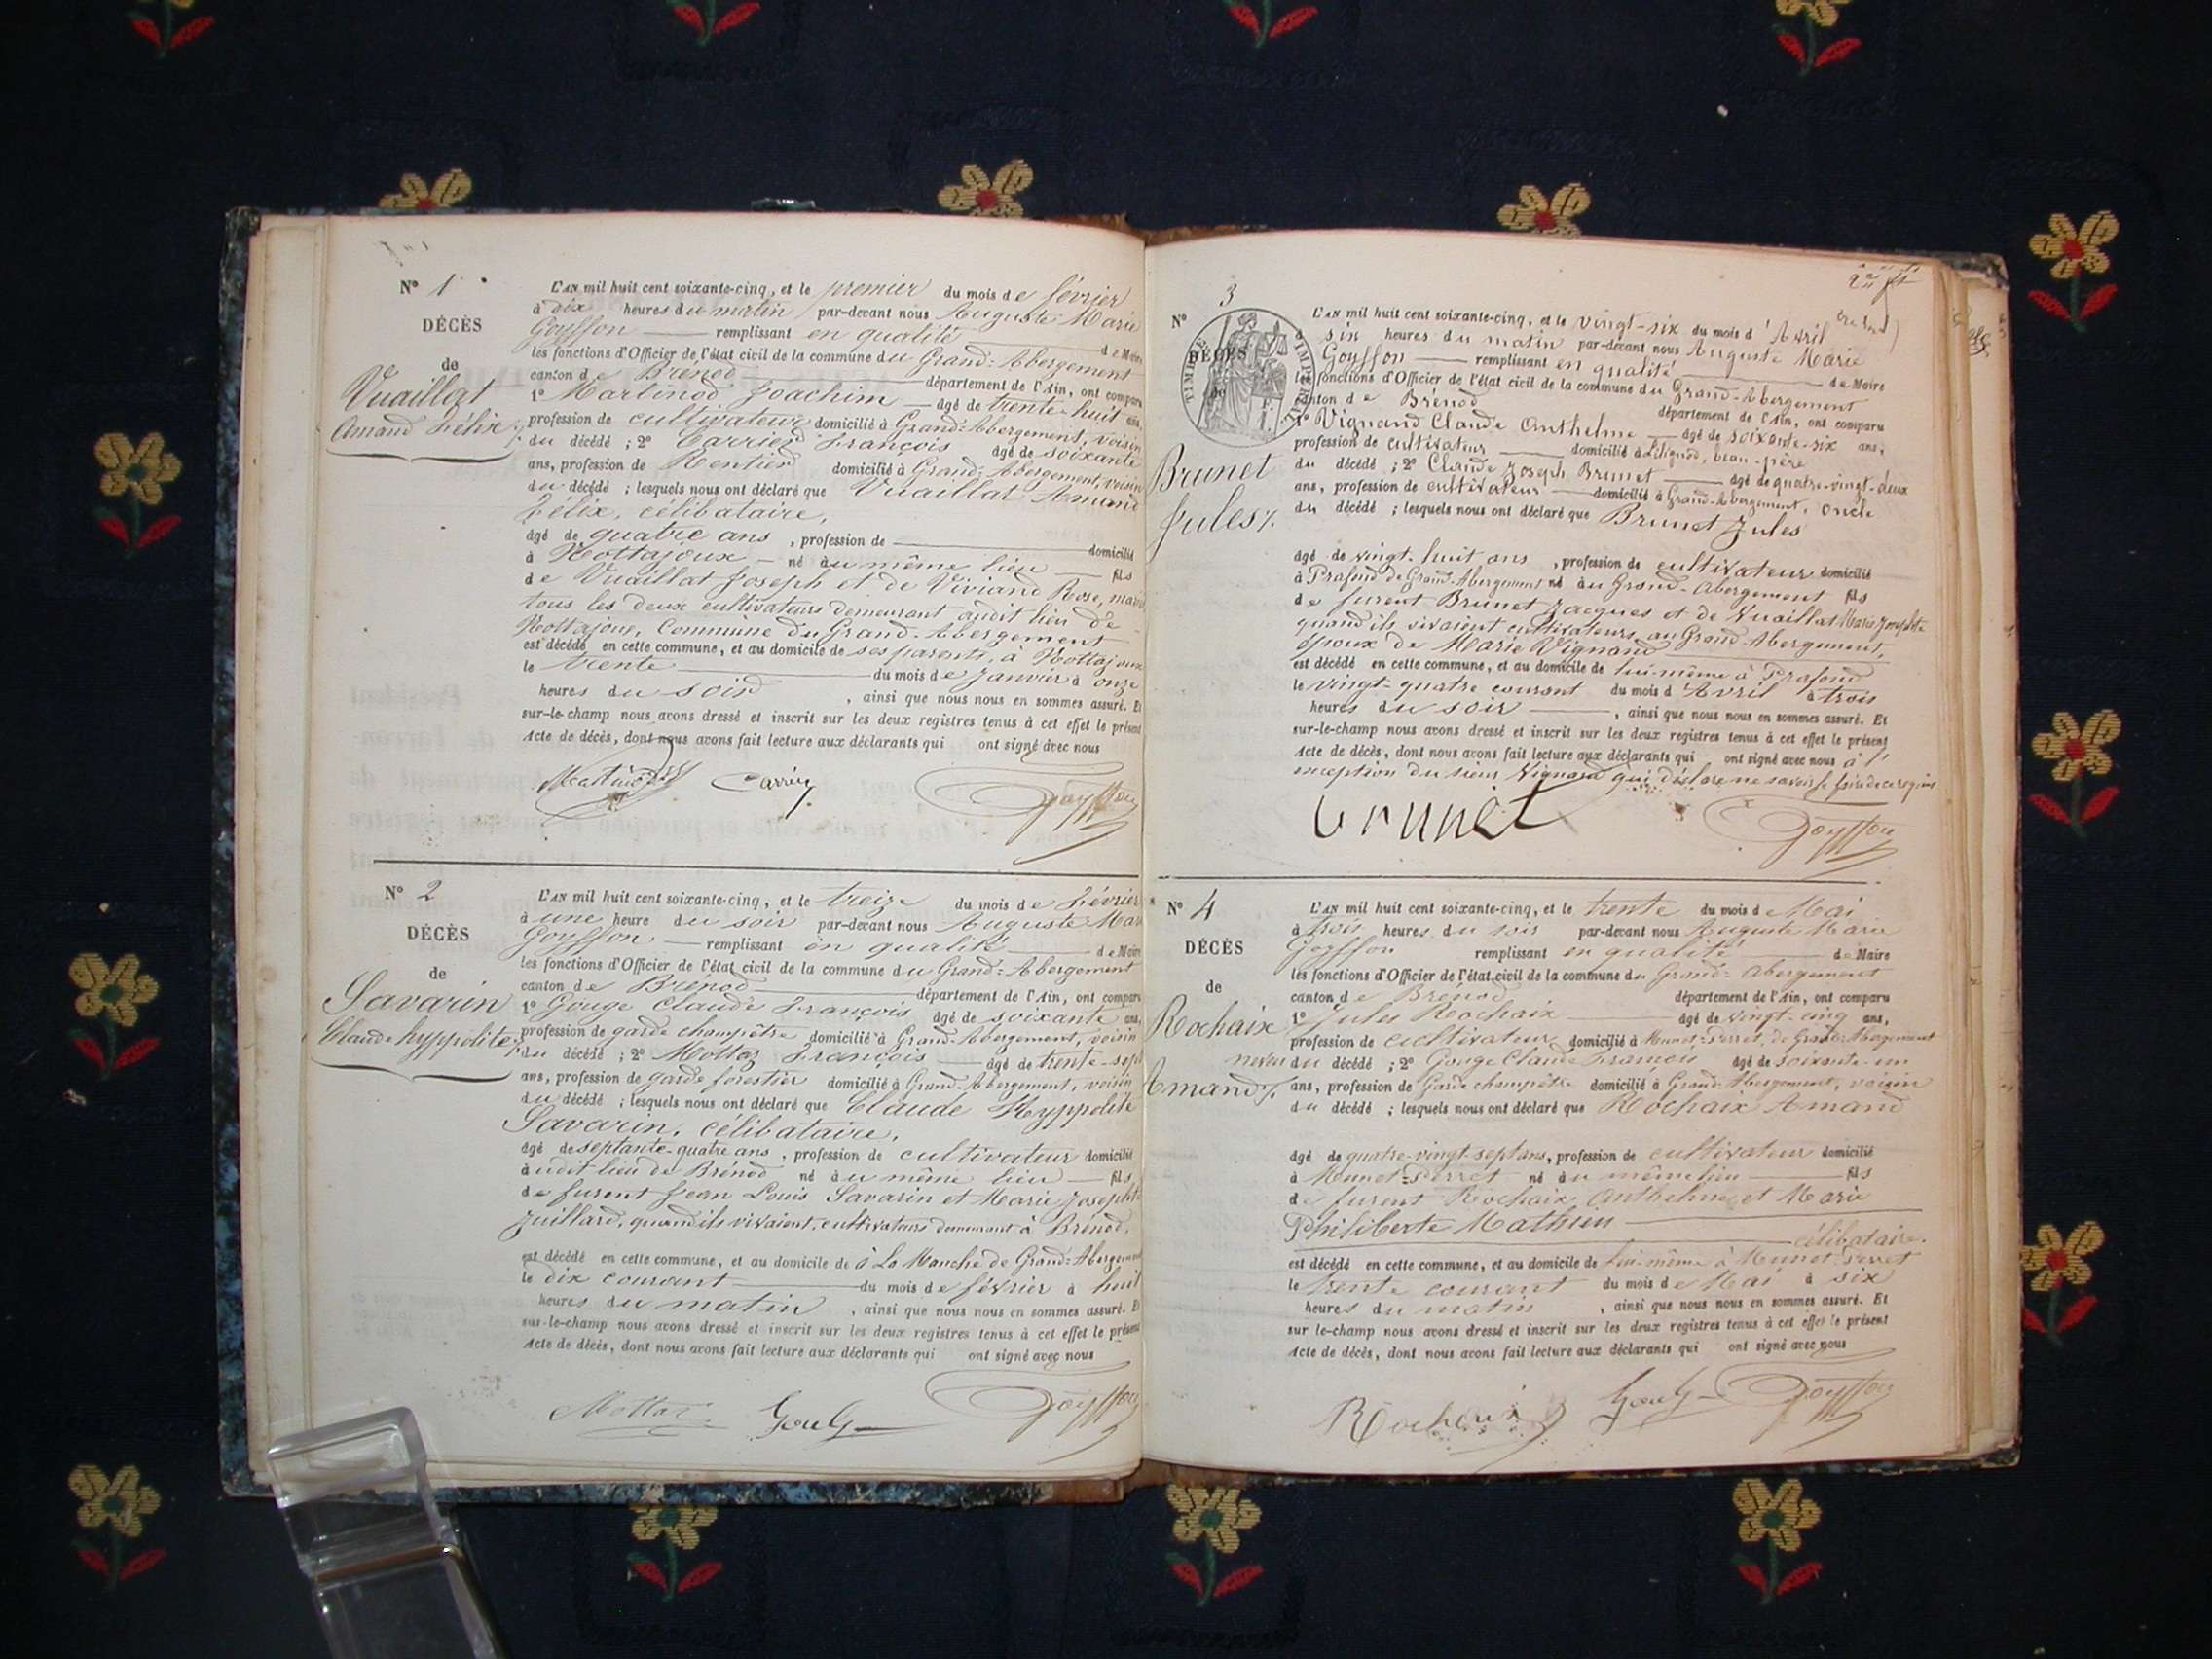 N° 1
DÉCÈS
de
Vuaillat
Amand Félix
L'AN mil huit cent soixante-cinq, et le premier du mois de février
à dix heures du matin par-devant nous Auguste Marie
Goyffon remplissant en qualité de Maire
les fonctions d'Officier de l'état civil de la commune du Grand-Abergement
canton de Brénod département de l'Ain, ont comparu
1° Martinod Joachim âgé de trente-huit ans,
profession de cultivateur domicilié à Grand-Abergement, voisin
du décédé ; 2° Carrier François âgé de soixante
ans, profession de Rentier domicilié à Grand-Abergement, voisin
du décédé ; lesquels nous ont déclaré que Vuaillat Amand
Félix, célibataire,
âgé de quatre ans, profession de domicilié
à Hottajoux né au même lieu fils
de Vuaillat Joseph et de Viviand Rose,
tous les deux cultivateurs demeurant audit lieu de
Commune du Grand-Abergement
est décédé en cette commune, et au domicile de ses parents, à
le trente du mois de janvier à onze
heures du soir, ainsi que nous nous en sommes assuré. Et
sur-le-champ nous avons dressé et inscrit sur les deux registres tenus à cet effet le présent
Acte de décès, dont nous avons fait lecture aux déclarants qui ont signé avec nous
Martinod Carrier Goyffon
N° 2
DÉCÈS
de
Savarin
Claude hyppolite
L'AN mil huit cent soixante-cinq, et le treize du mois de Février
à une heure du soir par-devant nous Auguste Mar
Goyffon remplissant en qualité de Maire
les fonctions d'Officier de l'état civil de la commune du Grand-Abergement
canton de Brénod département de l'Ain, ont comparu
1° Gouge Claude François âgé de soixante ans,
profession de garde champêtre domicilié à Grand-Abergement, voisin
du décédé ; 2° Mottaz François âgé de trente-sept
ans, profession de garde forestier domicilié à Grand-Abergement, voisin
du décédé ; lesquels nous ont déclaré que Claude Hyppolite
Savarin, célibataire,
âgé de septante-quatre ans, profession de cultivateur domicilié
audit lieu de Brénod né au même lieu fils
de furent Jean Louis Savarin et Marie Josephte
Juillard, quand ils vivaient, cultivateurs demeurant à Brénod.
est décédé en cette commune, et au domicile de à La Manche de Grand-Abergement
le dix courant du mois de février à huit
heures du matin, ainsi que nous nous en sommes assuré. Et
sur-le-champ nous avons dressé et inscrit sur les deux registres tenus à cet effet le présent
Acte de décès, dont nous avons fait lecture aux déclarants qui ont signé avec nous
Mottaz Gouge Goyffon
N° 3
TIMBRE IMPÉRIAL
DÉCÈS
de
Brunet
Jules
L'AN mil huit cent soixante-cinq, et le vingt-six du mois d'Avril
six heures du matin par-devant nous Auguste Marie
Goyffon remplissant en qualité de Maire
les fonctions d'Officier de l'état civil de la commune du Grand-Abergement
canton de Brénod département de l'Ain, ont comparu
1° Vignand Claude Anthelme âgé de soixante-six ans,
profession de cultivateur domicilié à beau-père
du décédé ; 2° Claude Joseph Brunet âgé de quatre-vingt-deux
ans, profession de cultivateur domicilié à Grand-Abergement, oncle
du décédé ; lesquels nous ont déclaré que Brunet Jules
âgé de vingt-huit ans, profession de cultivateur domicilié
à Prafond de Grand-Abergement né au Grand-Abergement fils
de furent Brunet Jacques et de Vuaillat Marie Josephte
quand ils vivaient cultivateurs au Grand-Abergement,
époux de Marie Vignand
est décédé en cette commune, et au domicile de lui-même à Prafond
le vingt-quatre courant du mois d'Avril à trois
heures du soir, ainsi que nous nous en sommes assuré. Et
sur-le-champ nous avons dressé et inscrit sur les deux registres tenus à cet effet le présent
Acte de décès, dont nous avons fait lecture aux déclarants qui ont signé avec nous à l'
exception du sieur Vignand qui déclare ne savoir le faire de ce requis
Brunet Goyffon
N° 4
DÉCÈS
de
Rochaix
Amand
L'AN mil huit cent soixante-cinq, et le trente du mois de Mai
à trois heures du soir par-devant nous Auguste Marie
Goyffon remplissant en qualité de Maire
les fonctions d'Officier de l'état civil de la commune du Grand-Abergement
canton de Brénod département de l'Ain, ont comparu
1° Jules Rochaix âgé de vingt-cinq ans,
profession de cultivateur domicilié à Munet-Perret, de Grand-Abergement
neveu du décédé ; 2° Gouge Claude François âgé de soixante-un
ans, profession de Garde champêtre domicilié à Grand-Abergement, voisin
du décédé ; lesquels nous ont déclaré que Rochaix Amand
âgé de quatre-vingt-sept ans, profession de cultivateur domicilié
à Munet-Perret né au même lieu fils
de furent Rochaix Anthelme et Marie
Philiberte Mathieu
célibataire.
est décédé en cette commune, et au domicile de lui-même à Munet Perret
le trente courant du mois de Mai à six
heures du matin, ainsi que nous nous en sommes assuré. Et
sur le-champ nous avons dressé et inscrit sur les deux registres tenus à cet effet le présent
Acte de décès, dont nous avons fait lecture aux déclarants qui ont signé avec nous
Rochaix Gouge Goyffon